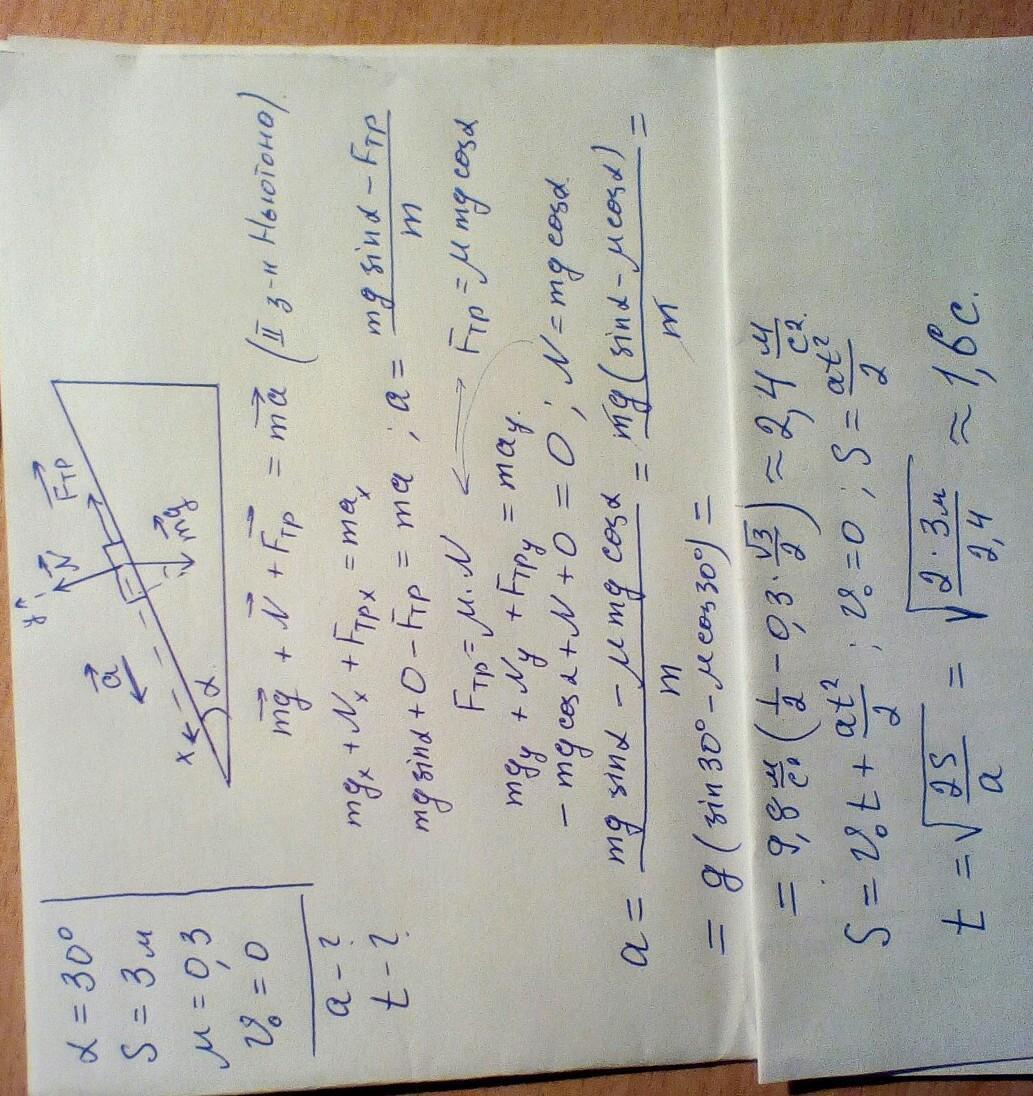 α = 30°
S = 3 м
μ = 0,3
v₀ = 0
a – ?
t – ?
y
N⃗
F⃗тр
a⃗
x
α
mg⃗
mg⃗ + N⃗ + F⃗тр = ma⃗ (II з-н Ньютона)
mgₓ + Nₓ + Fтрₓ = maₓ
mg sinα + 0 – Fтр = ma ; a = (mg sinα – Fтр)/m
Fтр = μ·N ⟷ Fтр = μmg cosα
mgᵧ + Nᵧ + Fтрᵧ = maᵧ
– mg cosα + N + 0 = 0 ; N = mg cosα
a = (mg sinα – μmg cosα)/m = mg(sinα – μcosα)/m =
= g (sin30° – μcos30°) =
= 9,8 м/с² (1/2 – 0,3·√3/2) ≈ 2,4 м/с²
S = v₀t + at²/2 ; v₀ = 0 ; S = at²/2
t = √(2S/a) = √(2·3м/2,4) ≈ 1,6 с.